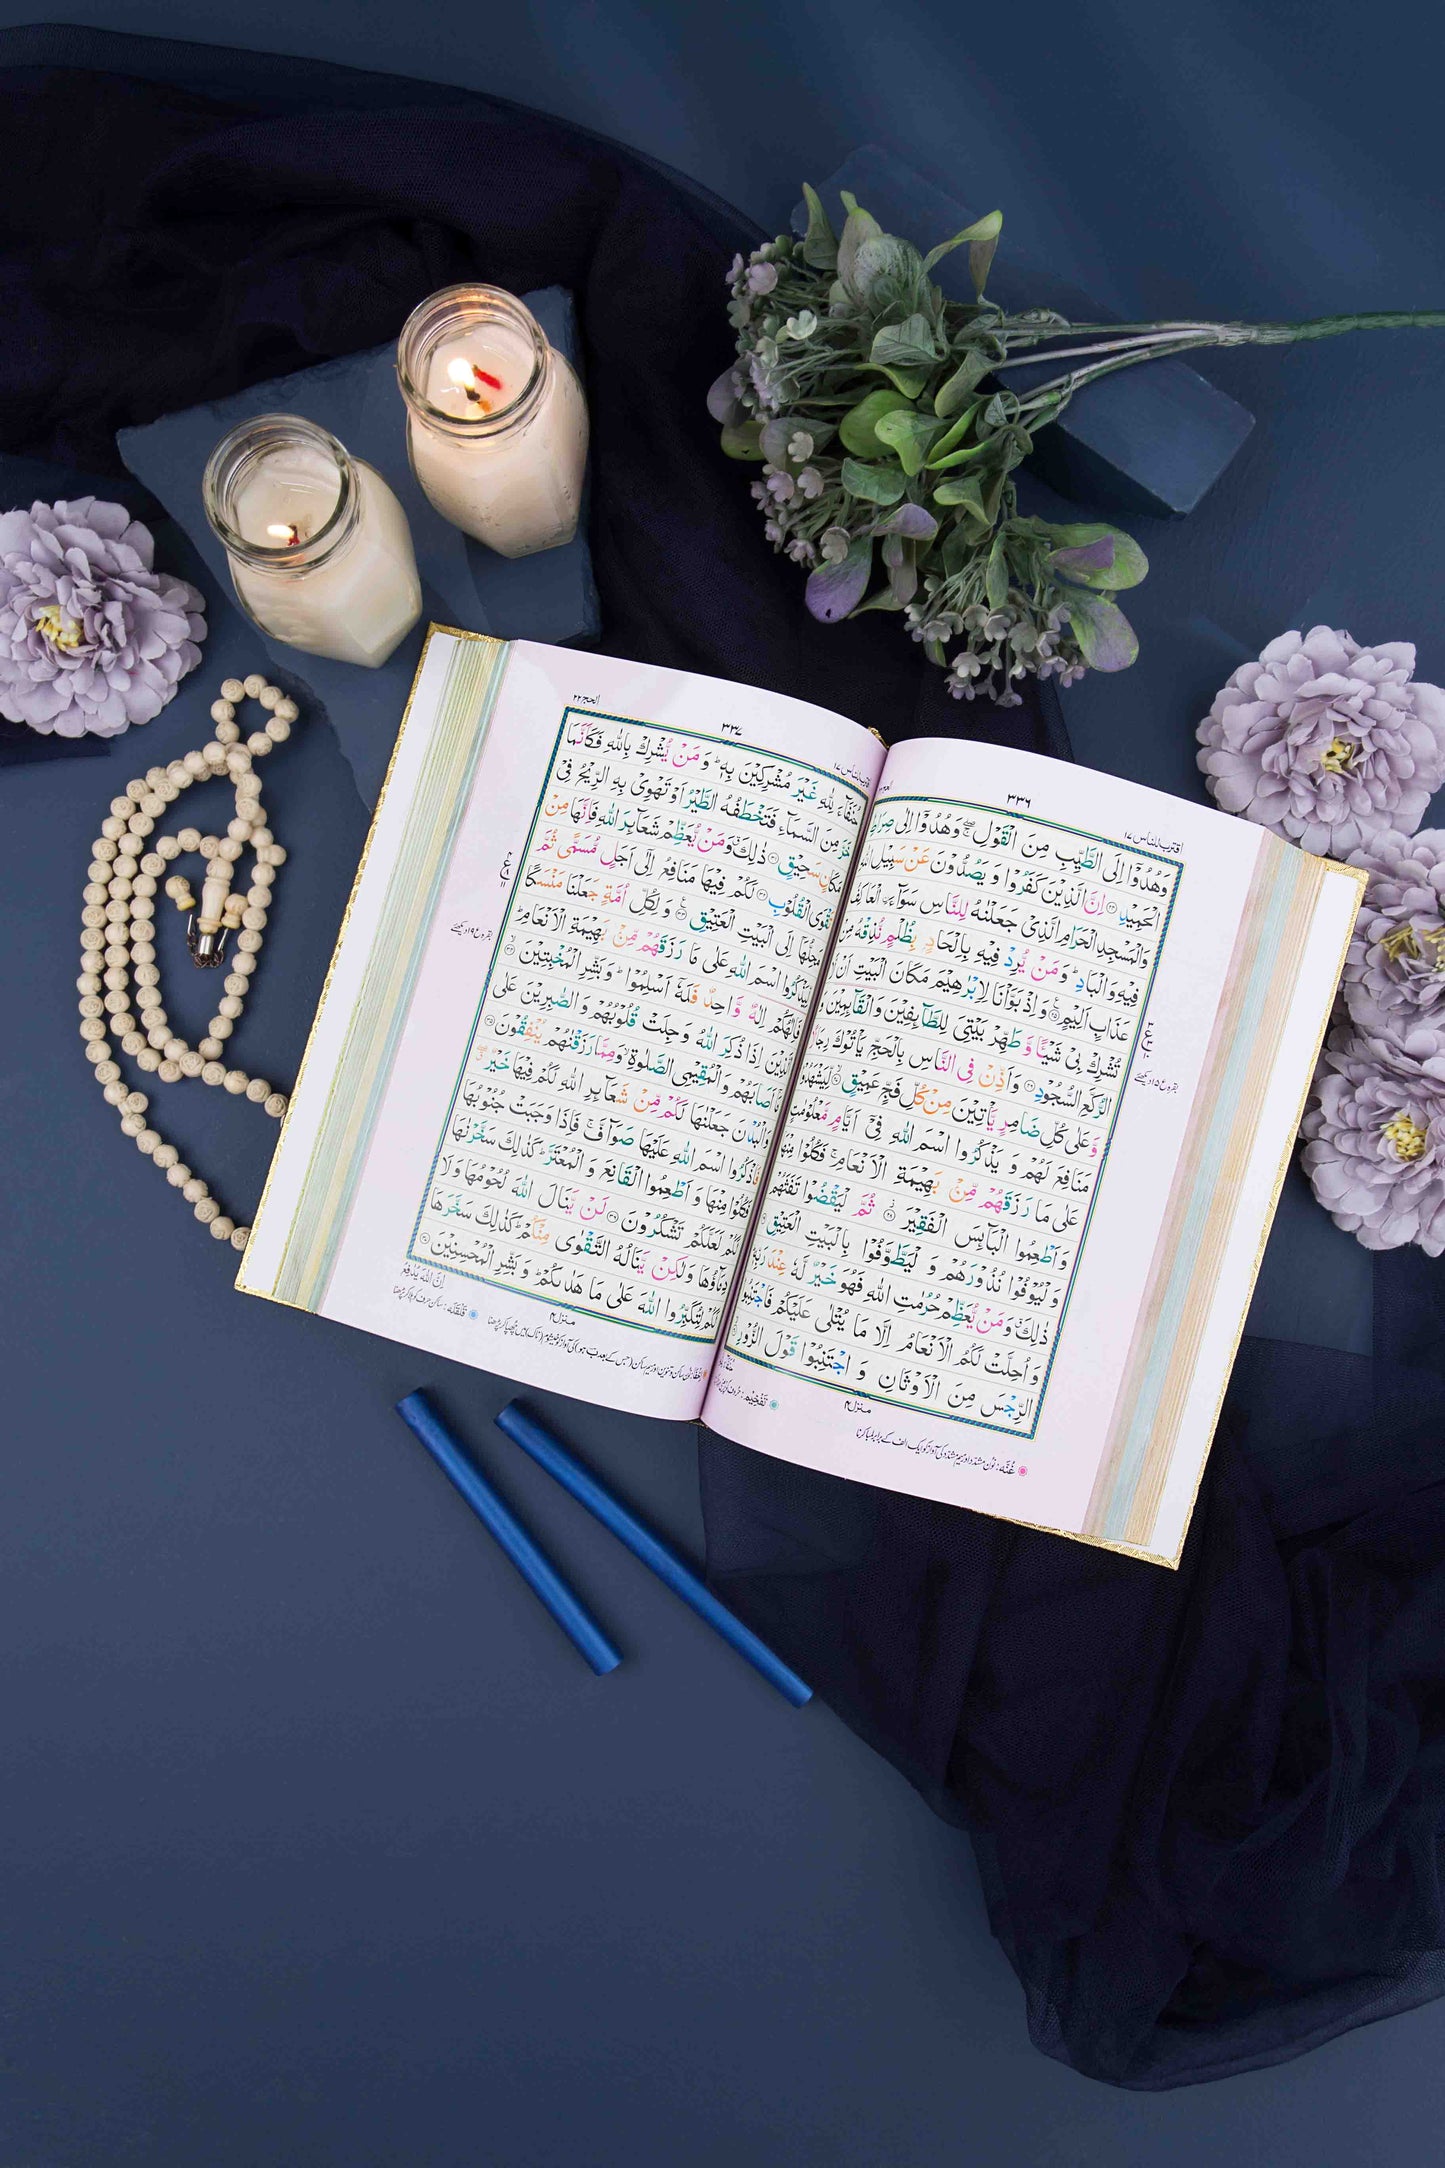 اقترب للناس ۱۷
۳۳۶
وَهُدُوْۤا اِلَى الطَّيِّبِ مِنَ الْقَوْلِ ۖۚ وَهُدُوْۤا اِلٰى صِرَاطِ
الْحَمِيْدِ ﴿۲۴﴾ اِنَّ الَّذِيْنَ كَفَرُوْا وَ يَصُدُّوْنَ عَنْ سَبِيْلِ اللّٰهِ
وَالْمَسْجِدِ الْحَرَامِ الَّذِيْ جَعَلْنٰهُ لِلنَّاسِ سَوَآءَ ۨالْعَاكِفُ
فِيْهِ وَالْبَادِ ؕ وَمَنْ يُّرِدْ فِيْهِ بِاِلْحَادٍۭ بِظُلْمٍ نُّذِقْهُ مِنْ
عَذَابٍ اَلِيْمٍ ﴿۲۵﴾ وَاِذْ بَوَّاْنَا لِاِبْرٰهِيْمَ مَكَانَ الْبَيْتِ اَنْ
تُشْرِكْ بِيْ شَيْـًٔا وَّطَهِّرْ بَيْتِيَ لِلطَّآئِفِيْنَ وَالْقَآئِمِيْنَ
الرُّكَّعِ السُّجُوْدِ ﴿۲۶﴾ وَاَذِّنْ فِي النَّاسِ بِالْحَجِّ يَاْتُوْكَ رِجَالًا
وَّعَلٰى كُلِّ ضَامِرٍ يَّاْتِيْنَ مِنْ كُلِّ فَجٍّ عَمِيْقٍ ﴿۲۷﴾ لِّيَشْهَدُوْا
مَنَافِعَ لَهُمْ وَ يَذْكُرُوا اسْمَ اللّٰهِ فِيْۤ اَيَّامٍ مَّعْلُوْمٰتٍ
عَلٰى مَا رَزَقَهُمْ مِّنْۢ بَهِيْمَةِ الْاَنْعَامِ ۚ فَكُلُوْا مِنْهَا
وَاَطْعِمُوا الْبَآئِسَ الْفَقِيْرَ ﴿۲۸﴾ ثُمَّ لْيَقْضُوْا تَفَثَهُمْ
وَلْيُوْفُوْا نُذُوْرَهُمْ وَ لْيَطَّوَّفُوْا بِالْبَيْتِ الْعَتِيْقِ
ذٰلِكَ ۗ وَمَنْ يُّعَظِّمْ حُرُمٰتِ اللّٰهِ فَهُوَ خَيْرٌ لَّهٗ عِنْدَ رَبِّهٖ
وَاُحِلَّتْ لَكُمُ الْاَنْعَامُ اِلَّا مَا يُتْلٰى عَلَيْكُمْ فَاجْتَنِبُوا
الرِّجْسَ مِنَ الْاَوْثَانِ وَ اجْتَنِبُوْا قَوْلَ الزُّوْرِ
منزل۴
غُنَّه: نون مشدد اور میم مشدد کی آواز کو ایک الف کے برابر لمبا کرنا
تَفْخِيْم:
۳۳۷
الحج ۲۲
حُنَفَآءَ لِلّٰهِ غَيْرَ مُشْرِكِيْنَ بِهٖ ؕ وَمَنْ يُّشْرِكْ بِاللّٰهِ فَكَاَنَّمَا
خَرَّ مِنَ السَّمَآءِ فَتَخْطَفُهُ الطَّيْرُ اَوْ تَهْوِيْ بِهِ الرِّيْحُ فِيْ
مَكَانٍ سَحِيْقٍ ﴿۳۱﴾ ذٰلِكَ ۗ وَمَنْ يُّعَظِّمْ شَعَآئِرَ اللّٰهِ فَاِنَّهَا مِنْ
تَقْوَى الْقُلُوْبِ ﴿۳۲﴾ لَكُمْ فِيْهَا مَنَافِعُ اِلٰۤى اَجَلٍ مُّسَمًّى ثُمَّ
مَحِلُّهَاۤ اِلَى الْبَيْتِ الْعَتِيْقِ ﴿۳۳﴾ وَ لِكُلِّ اُمَّةٍ جَعَلْنَا مَنْسَكًا
لِّيَذْكُرُوا اسْمَ اللّٰهِ عَلٰى مَا رَزَقَهُمْ مِّنْۢ بَهِيْمَةِ الْاَنْعَامِ ؕ
فَاِلٰهُكُمْ اِلٰهٌ وَّاحِدٌ فَلَهٗۤ اَسْلِمُوْا ؕ وَبَشِّرِ الْمُخْبِتِيْنَ ﴿۳۴﴾
الَّذِيْنَ اِذَا ذُكِرَ اللّٰهُ وَجِلَتْ قُلُوْبُهُمْ وَ الصّٰبِرِيْنَ عَلٰى
مَاۤ اَصَابَهُمْ وَ الْمُقِيْمِي الصَّلٰوةِ ۙ وَمِمَّا رَزَقْنٰهُمْ يُنْفِقُوْنَ ﴿۳۵﴾
وَالْبُدْنَ جَعَلْنٰهَا لَكُمْ مِّنْ شَعَآئِرِ اللّٰهِ لَكُمْ فِيْهَا خَيْرٌ
فَاذْكُرُوا اسْمَ اللّٰهِ عَلَيْهَا صَوَآفَّ ۚ فَاِذَا وَجَبَتْ جُنُوْبُهَا
فَكُلُوْا مِنْهَا وَ اَطْعِمُوا الْقَانِعَ وَ الْمُعْتَرَّ ؕ كَذٰلِكَ سَخَّرْنٰهَا
لَكُمْ لَعَلَّكُمْ تَشْكُرُوْنَ ﴿۳۶﴾ لَنْ يَّنَالَ اللّٰهَ لُحُوْمُهَا وَلَا
دِمَآؤُهَا وَلٰكِنْ يَّنَالُهُ التَّقْوٰى مِنْكُمْ ؕ كَذٰلِكَ سَخَّرَهَا
لَكُمْ لِتُكَبِّرُوا اللّٰهَ عَلٰى مَا هَدٰىكُمْ ؕ وَ بَشِّرِ الْمُحْسِنِيْنَ ﴿۳۷﴾
اِنَّ اللّٰهَ يُدٰفِعُ
منزل۴
قَلْقَلَه: ساکن حرف کو ہلا کر پڑھنا